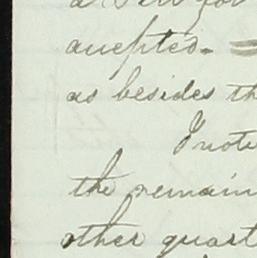 a
for
accepted. =
as besides th
I note
the remain
other quart